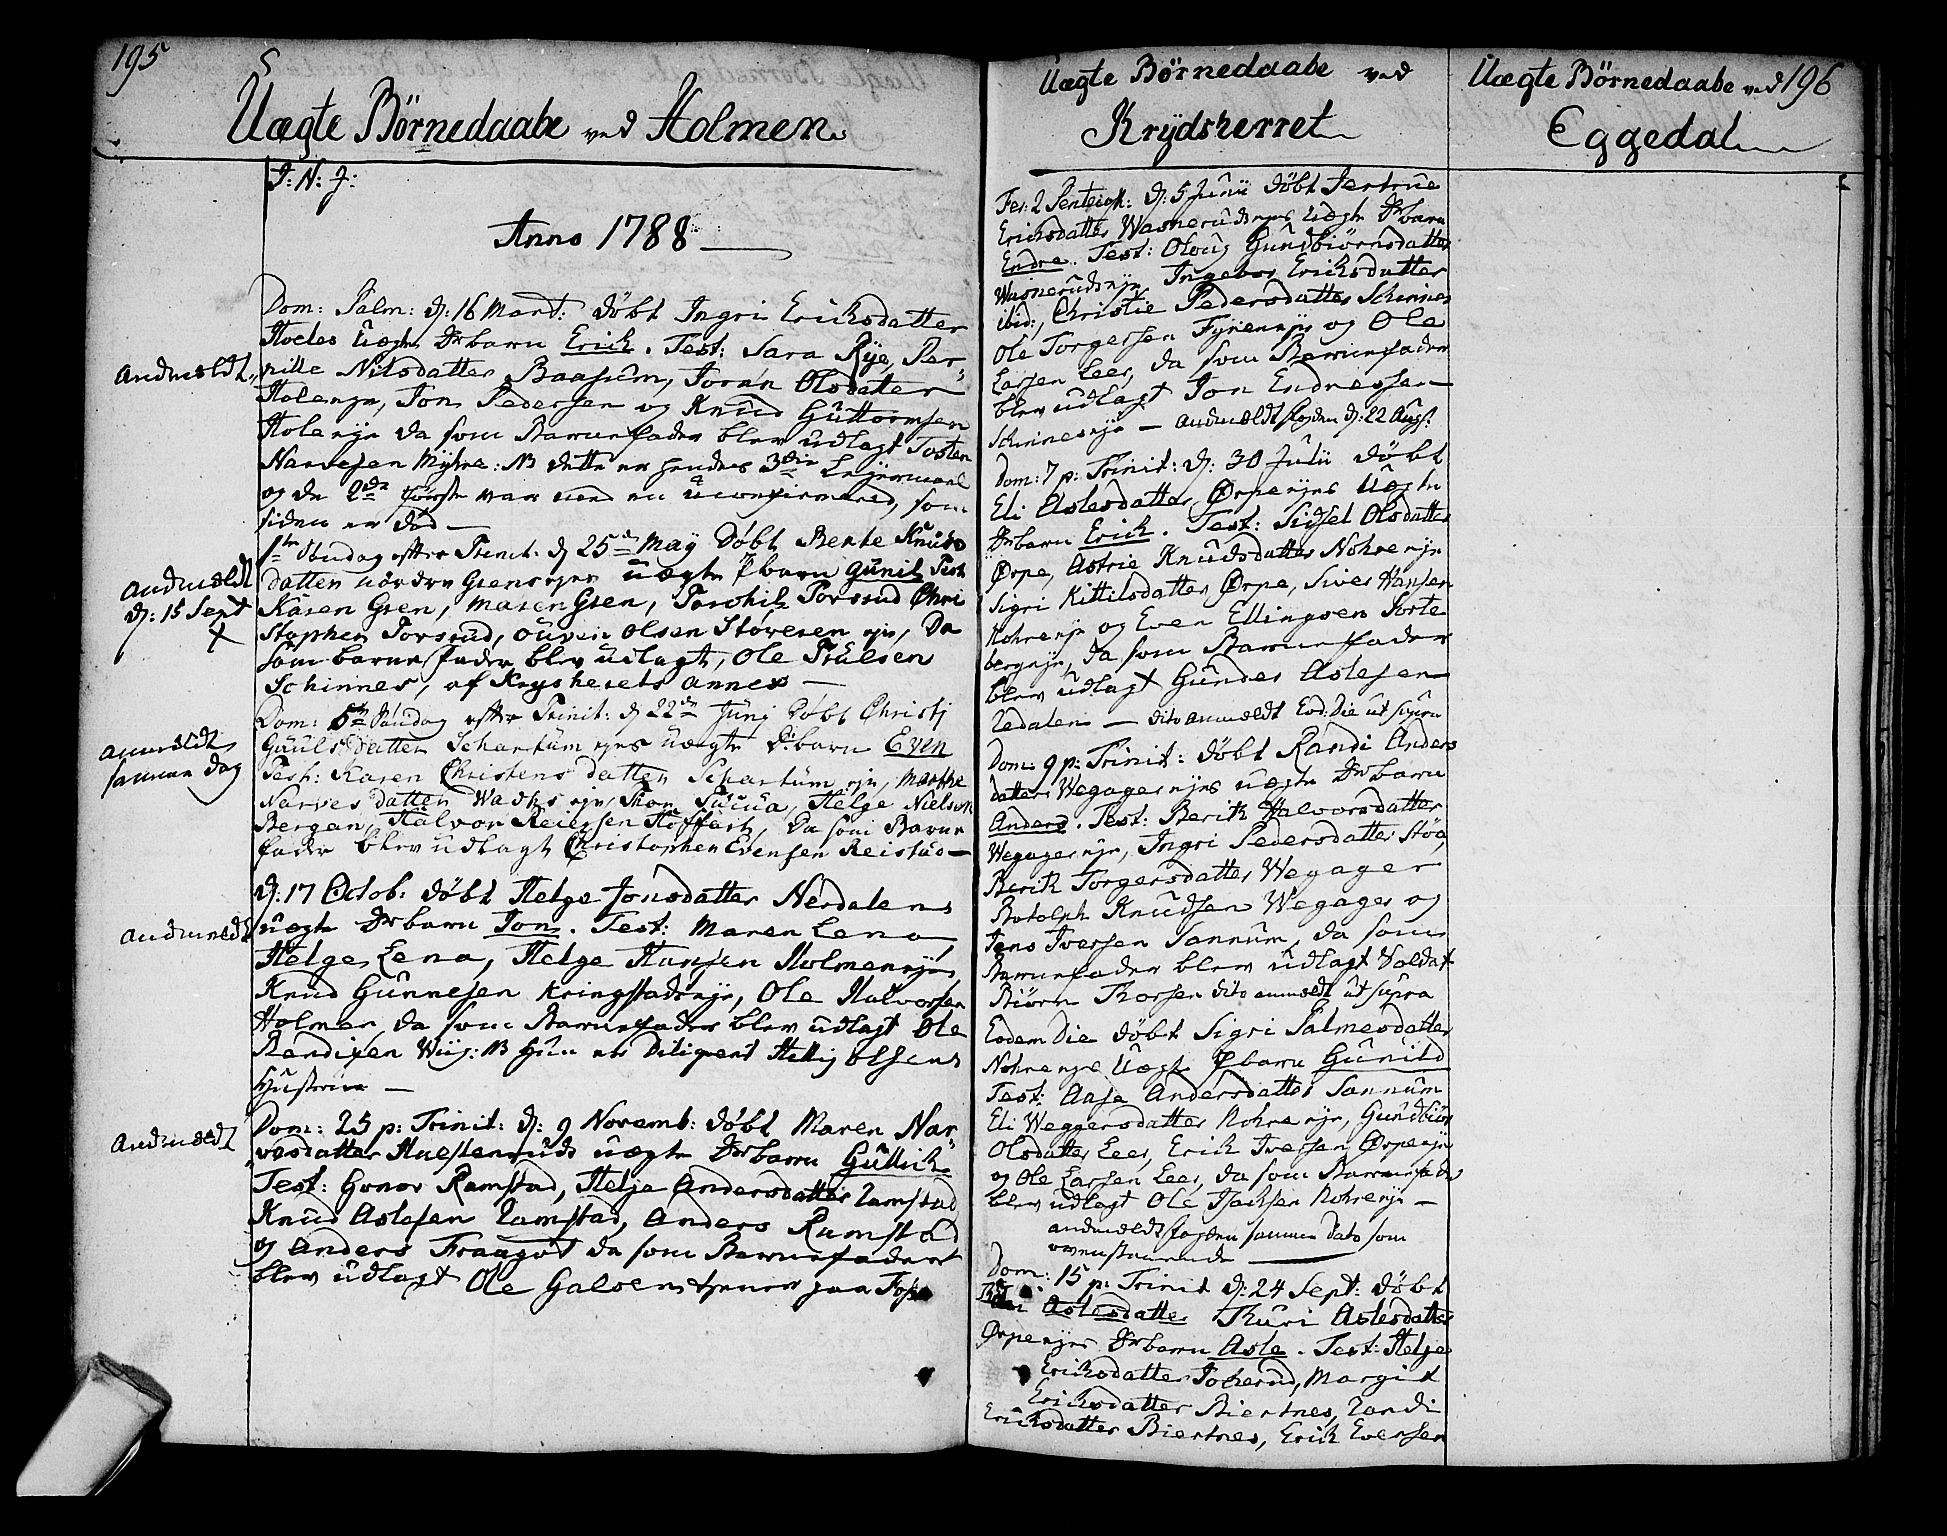 195
Uægte Börnedaabe ved Holmen
J: N: J:
Anno 1788
Dom: Palm: d: 16 Mart: döbt Ingri Ericksdatter
Uægte Drbarn Erick. Test: Sara Rye, Per-
Andmeldt
nille Nilsdatter Baasum, Joran Olsdatter
Holenejr, Jon Pedersen og Knud Guttormsen
Holenejr da som Barnefader blev udlagt Tosten
Narvesen Myhre: NB dette er hendes 3die Lejermaal
og de 2de förste var med en uconfirmered, som
siden er död
1te Söndag efter Trinit: d 25de Maÿ Döbt Bente Knuds
Andmeldt
datter nordre Grens ejer uægte P barn Gunil Test
d: 15 Sept
Karen Gren, Maren Gren, Torchil Torsrud Chri
stopher Torsrud, Ouven Olsen Stövesen ejr, Da
som barne fader blev udlagt, Ole Trulsen
Schinnes, af Krysherets annex
Dom: 5te Söndag efter Trinit: d 22de Junj Döbt Christj
Guulsdatter Schartum ejes uægte Drbarn Even
Anmeldt
samme dag
Test: Karen Christensdatter Schartum ejr, Marthe
Narvesdatter ejr, Thom Helge Nielsen
Bergan, Halvor Reiersen Hoffart, Da som Barne
fader blev udlagt Christopher Evensen Reistad
d: 17 Octob: döbt Helge Jonsdatter Nerdalens
Andmeldt
uægte Drbarn Jon. Test: Maren Lena,
Helge Lena, Helge Hansen Holmenejr,
Knud Gunnesen Kringstadejr, Ole Halvorsen
Holmen, da som Barnefader blev udlagt Ole
Randixen Wiig: NB Hun er Olsens
Hustrue
Dom: 25 p: Trinit: d: 9 Novemb: döbt Maren Nar-
Andmeldt
vesdatter uægte Drbarn Gullich
Test: Gunor Ramstad, Helje Andersdatter Ramstad
Knud Aslesen Ramstad, Anders Ramstad
og Anders Fraagot da som Barnefader
blev udlagt Ole Galsen tjener paa
Uægte Börnedaabe ved
Krydsherret
Fer: 2 Pentecost: d: 5 Junii döbt Jertrue
Ericksdatter uægte Drbarn
Endre. Test: Oloug Gundbiörnsdatter
Ingebor Ericksdatter
ibid:, Christie Pedersdatter Schinnes
Ole Torgersen og Ole
Larsen Leer, da som Barnefader
blev udlagt Jon Endresen
Schinnesejr — anmeldt d: 22 Aug:
Dom: 7 p: Trinit: d: 30 Julii döbt
Eli Aslesdatter Ørpeejes Uægte
Drbarn Erick. Test: Sidsel Olsdatter
Ørpe, Astrie Knudsdatter Nohreejr
Sigri Kittilsdatter Ørpe, Siver Hansen
Nohreejr og Even Ellingsen Sorte
bergejr, da som Barnefader
blev udlagt Gunder Aslesen
— dito anmeldt Eod: Die ut supra
Dom: 9 p: Trinit: döbt Randi Anders
datter Wegagerejes uægte Drbarn
Anders. Test: Berith Halvorsdatter
Wegagerejr, Ingri Pedersdatter Stöa,
Berith Torgersdatter Wegager
Botolph Knudsen Wegager og
Jens Iversen Sannum, da som
Barnefader blev udlagt Soldat
Biörn Thorsen dito anmeldt ut supra
Eodem Die döbt Sigri Palmesdatter
Nohreejes Uægte P barn Gunild
Test: Aase Andersdatter Sannum
Eli Weggersdatter Nohreejr, Gundbiör
Olsdatter Leer, Erick Iversen Ørpeejr
og Ole Larsen Leer, da som Barnefader
blev udlagt Ole Isachsen Nohreejr —
andmeldt samme Dato som
ovenstaaende
Dom: 15 p: Trinit d: 24 Sept: döbt
Aslesdatter Thuri Aslesdatter
Ørpeejes Drbarn Asle. Test: Helje
Ericksdatter Jocherud, Margit
Ericksdatter Biertnes, Randi
Ericksdatter Biertnes, Erick Evensen
Uægte Börnedaabe ved 196
Eggedal